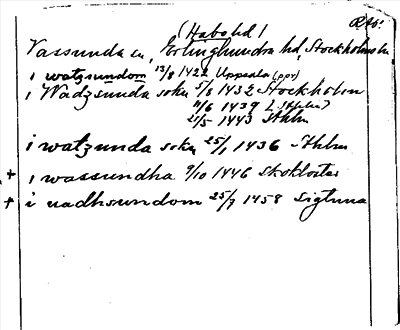 (Habohd)
RAp.
Vassunda sn, Erlinghundra hd, Stockholms ln
i watzsundom 13/8 1422 Uppsala (ppr)
i Wadzsunda sokn 5/8 1432 Stockholm
11/6 1439 (Sthlm)
21/5 1443 Sthlm
i watzunda sokn 25/1 1436 Sthlm
+ i wassundha 9/10 1446 Skokloster
+ i uadhsundom 25/7 1458 Sigtuna